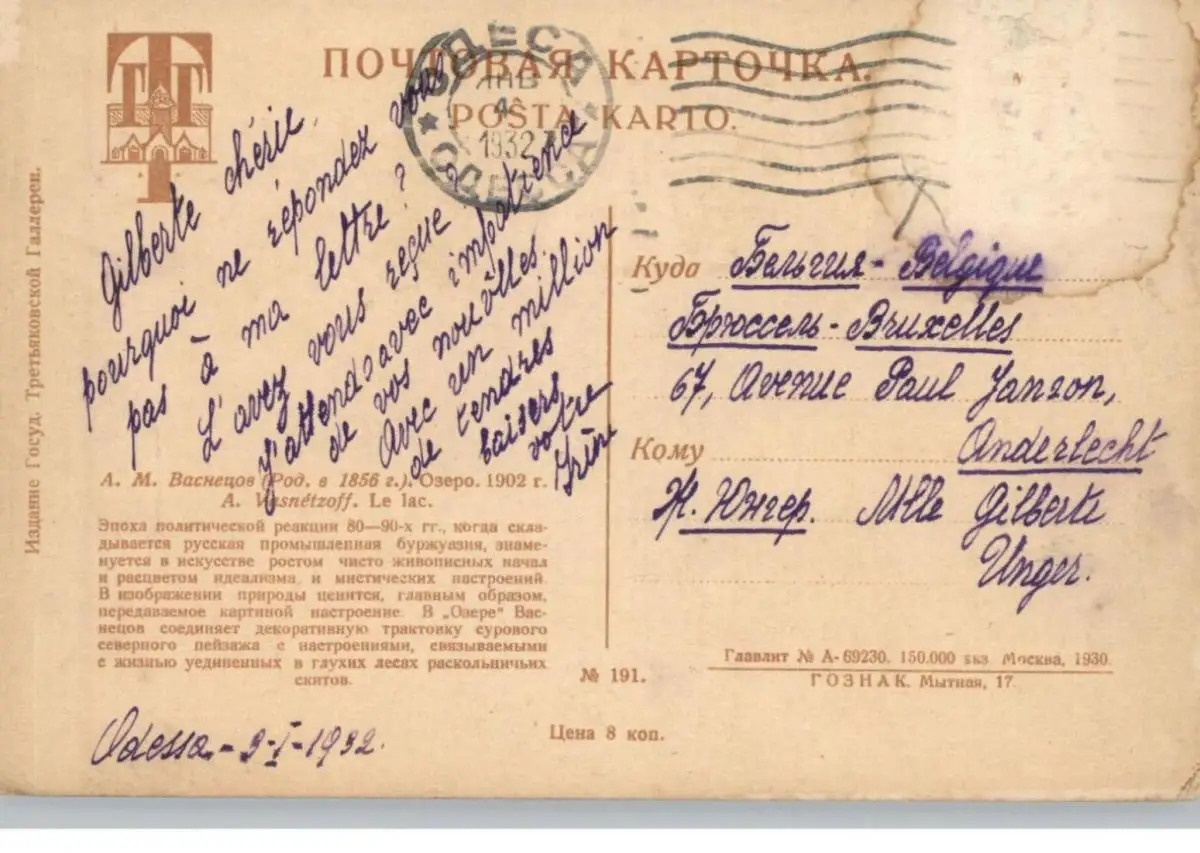 ПОЧТОВАЯ КАРТОЧКА.
POŜTA KARTO.
ОДЕСА
ЯНВ
4
1932
ОДЕССА
Издание Госуд. Третьяковской Галлереи.
Gilberte chérie,
pourquoi ne répondez vous
pas à ma lettre?
L'avez vous reçue?
J'attends avec impatience
de vos nouvelles.
Avec un million
de tendres
baisers,
votre
Irène
А. М. Васнецов (Род. в 1856 г.). Озеро. 1902 г.
A. Vasnétzoff. Le lac.
Эпоха политической реакции 80—90-х гг., когда скла-
дывается русская промышленная буржуазия, знаме-
нуется в искусстве ростом чисто живописных начал
и расцветом идеализма и мистических настроений.
В изображении природы ценится, главным образом,
передаваемое картиной настроение. В „Озере" Вас-
нецов соединяет декоративную трактовку сурового
северного пейзажа с настроениями, связываемыми
с жизнью уединенных в глухих лесах раскольничьих
скитов.
Odessa - 3-I-1932.
Куда Бельгия - Belgique
Брюссель - Bruxelles
67, Avenue Paul Janson,
Кому Anderlecht
Ж. Юнгер. Mlle Gilberte
Unger.
№ 191.
Главлит № А-69230. 150.000 экз. Москва, 1930.
ГОЗНАК. Мытная, 17
Цена 8 коп.